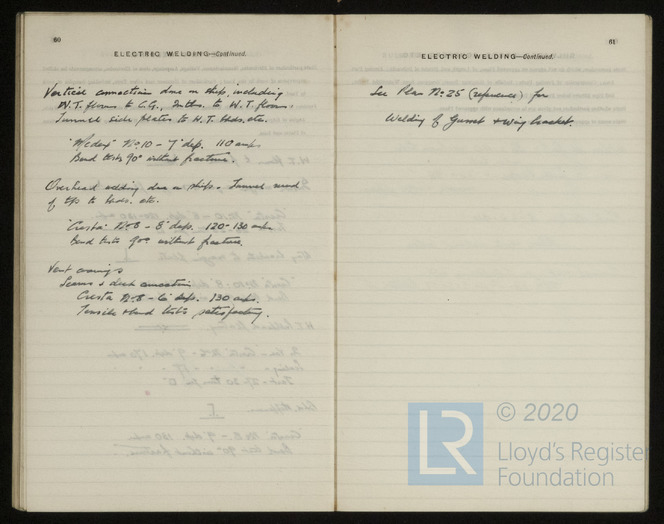 60
ELECTRIC WELDING—Continued.
Vertical connections done on ship, including
W.T. floors to C.G., to W.T. floors.
Tunnel side plates to W.T. bhds. etc.
No. 10 - 7" dep. 110 amps
Bend tests 90° without fracture.
Overhead welding done on ship - Tunnel
of to bhds. etc.
"Cresta" No. 8 - 8" dep. 120-130 amps
Bend tests 90° without fracture.
Vent coamings
Seams & deck connections
Cresta No. 8 - 6" dep. 130 amps.
Tensile & bend tests satisfactory.
61
ELECTRIC WELDING—Continued.
See Plan No. 25 (reference) for
Welding of Gusset & Wing bracket.
LR
© 2020
Lloyd's Register
Foundation